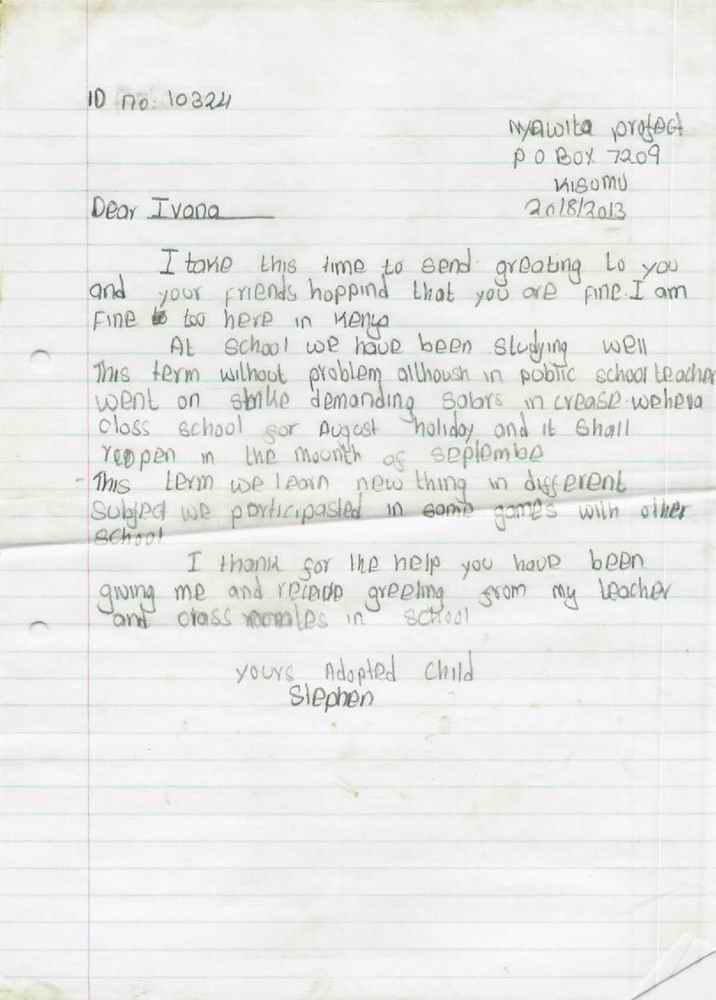 ID no: 10324
Nyawita project
P O Box 7209
Kisumu
Dear Ivana
20/8/2013
I take this time to send greating to you
and your friends hoppind that you are fine. I am
fine too here in Kenya
At school we have been studying well
This term without problem althoush in public school teacher
went on strike demanding salars in crease. we heva
closs school for August holiday and it shall
reopen in the mounth of septembe
This term we learn new thing in different
subject we participasted in some games with other
school
I thank for the help you have been
giving me and receive greeting from my teacher
and class in school
yours Adopted child
Stephen